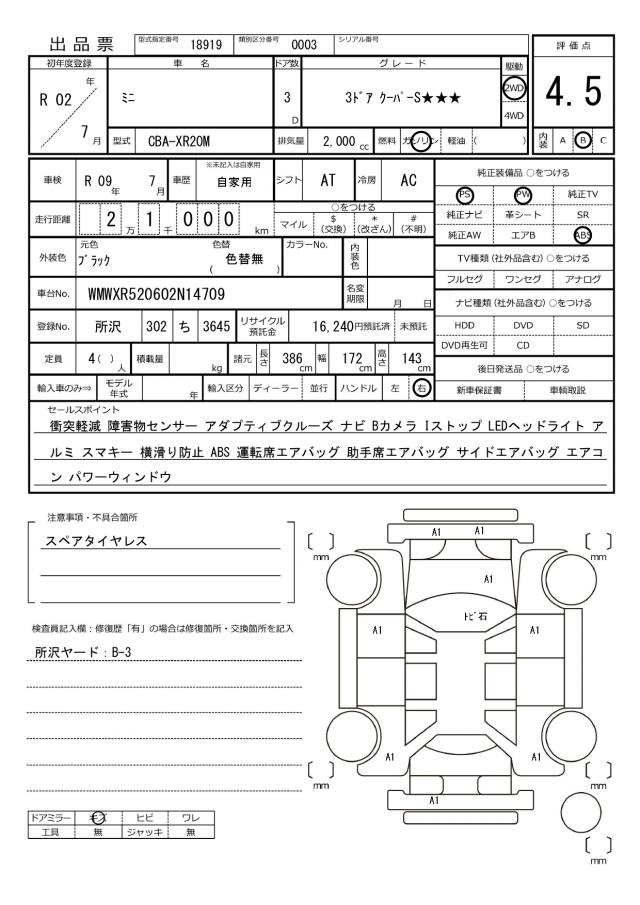 出品票 型式指定番号 18919 類別区分番号 0003 シリアル番号
評価点
4.5
内装 A B C
初年度登録 車名 ドア数 グレード 駆動
R 02 年 7 月
ミニ
3 D
3ドア クーパーS★★★
2WD
4WD
型式 CBA-XR20M 排気量 2,000 cc 燃料 ガソリン 軽油 ( )
車検 R 09 年 7 月 車歴 ※未記入は自家用 自家用 シフト AT 冷房 AC
走行距離 2 万 1 千 0 0 0 km
○をつける
マイル $ (交換) * (改ざん) # (不明)
外装色 元色 ブラック 色替 ( 色替無 ) カラーNo. 内装色
車台No. WMWXR520602N14709 名変期限 月 日
登録No. 所沢 302 ち 3645 リサイクル預託金 16,240円預託済 未預託
定員 4 ( ) 人 積載量 kg 諸元 長さ 386 cm 幅 172 cm 高さ 143 cm
輸入車のみ⇒ モデル年式 年 輸入区分 ディーラー 並行 ハンドル 左 右
純正装備品 ○をつける
PS PW 純正TV
純正ナビ 革シート SR
純正AW エアB ABS
TV種類 (社外品含む) ○をつける
フルセグ ワンセグ アナログ
ナビ種類 (社外品含む) ○をつける
HDD DVD SD
DVD再生可 CD
後日発送品 ○をつける
新車保証書 車輌取説
セールスポイント
衝突軽減 障害物センサー アダプティブクルーズ ナビ Bカメラ Iストップ LEDヘッドライト ア
ルミ スマキー 横滑り防止 ABS 運転席エアバッグ 助手席エアバッグ サイドエアバッグ エアコ
ン パワーウィンドウ
注意事項・不具合箇所
スペアタイヤレス
検査員記入欄：修復歴「有」の場合は修復箇所・交換箇所を記入
所沢ヤード：B-3
ドアミラー キズ ヒビ ワレ
工具 無 ジャッキ 無
A1 A1
mm mm
A1
トビ石
A1 A1
A1 A1
mm mm
A1
mm